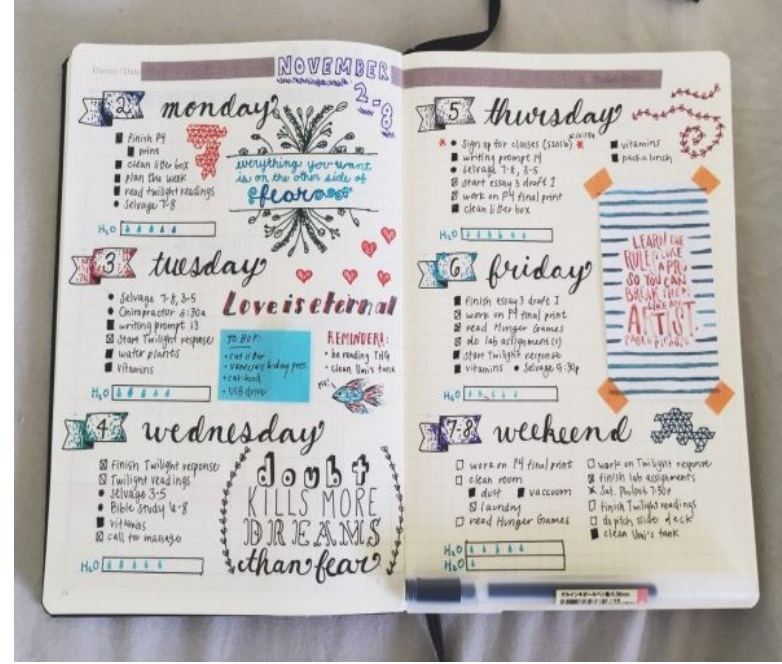 NOVEMBER
2-8
2 monday
finish P4
print
clean litter box
plan the week
read twilight readings
Selvage 7-8
H2O
everything you want
is on the other side of
fear
3 tuesday
Selvage 7-8, 3-5
Chiropractor 8:30a
writing prompt 13
Start Twilight response
water plants
vitamins
H2O
Love is eternal
TO BUY:
cat litter
b-day pres.
cat food
USB drive
REMINDERS:
be reading TNG
clean Umi's tank
4 wednesday
finish Twilight response
Twilight readings
Selvage 3-5
Bible Study 6-8
vitamins
call for massage
H2O
doubt
KILLS MORE
DREAMS
than fear
5 thursday
Sign up for classes (S2016)
writing prompt 14
Selvage 7-8, 3-5
start essay 3 draft 1
work on P4 final print
clean litter box
vitamins
pack a lunch
H2O
LEARN THE
RULES LIKE
A PRO,
SO YOU CAN
BREAK THEM
LIKE AN
ARTIST.
PABLO PICASSO
6 friday
finish essay 3 draft 1
work on P4 final print
read Hunger Games
do lab assignment(s)
start Twilight response
vitamins
Selvage 5:30p
H2O
7-8 weekend
work on P4 final print
clean room
dust
vaccuum
laundry
read Hunger Games
work on Twilight response
finish lab assignments
Sat. Philpot 7:30p
finish Twilight readings
do pitch slide deck
clean Umi's tank
H2O
H2O